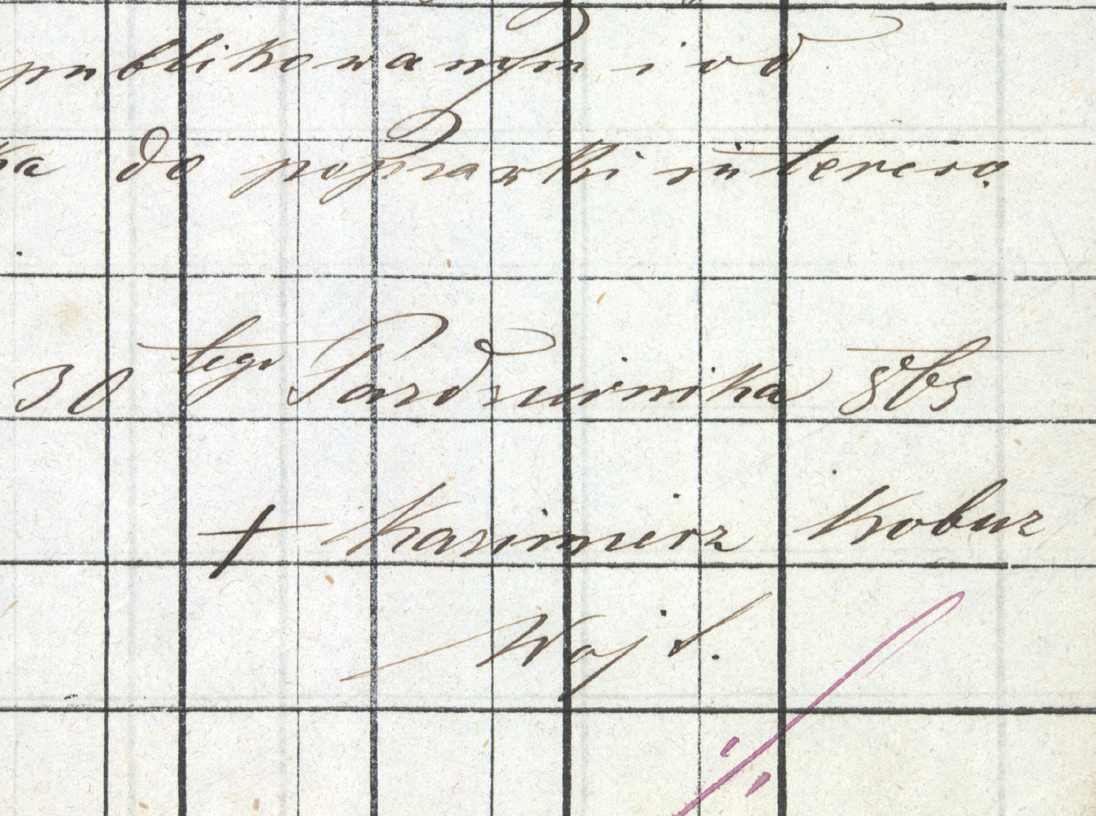 publikowanym i od
ka do poprawki intereso
30 tego Pazdziernika 865
+ Kazimierz Kobuz
Wojt.